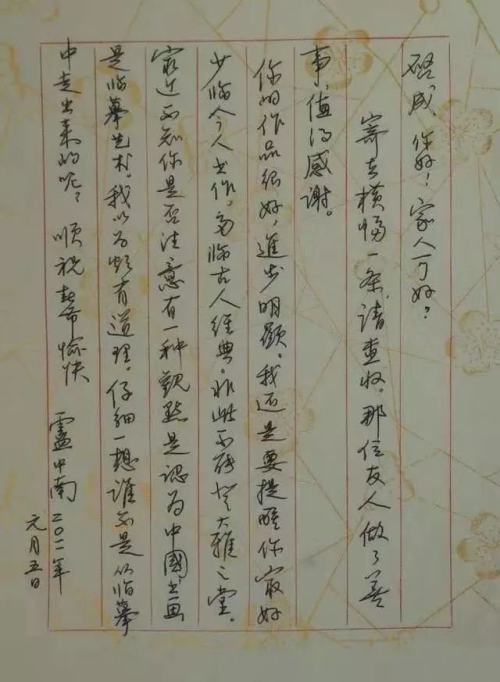 启成，你好！家人可好？
寄去横幅一条，请查收。那位友人做了善
事，值得感谢。
你的作品很好，进步明显。我还是要提醒你最好
少临今人书作，多临古人经典。非此不能登大雅之堂。
最近不知你是否注意有一种观点是认为中國书画
是临摹艺术。我以为颇有道理。仔细一想谁不是从临摹
中走出来的呢？ 顺祝 春愉快
卢中南二〇一一年
元月五日